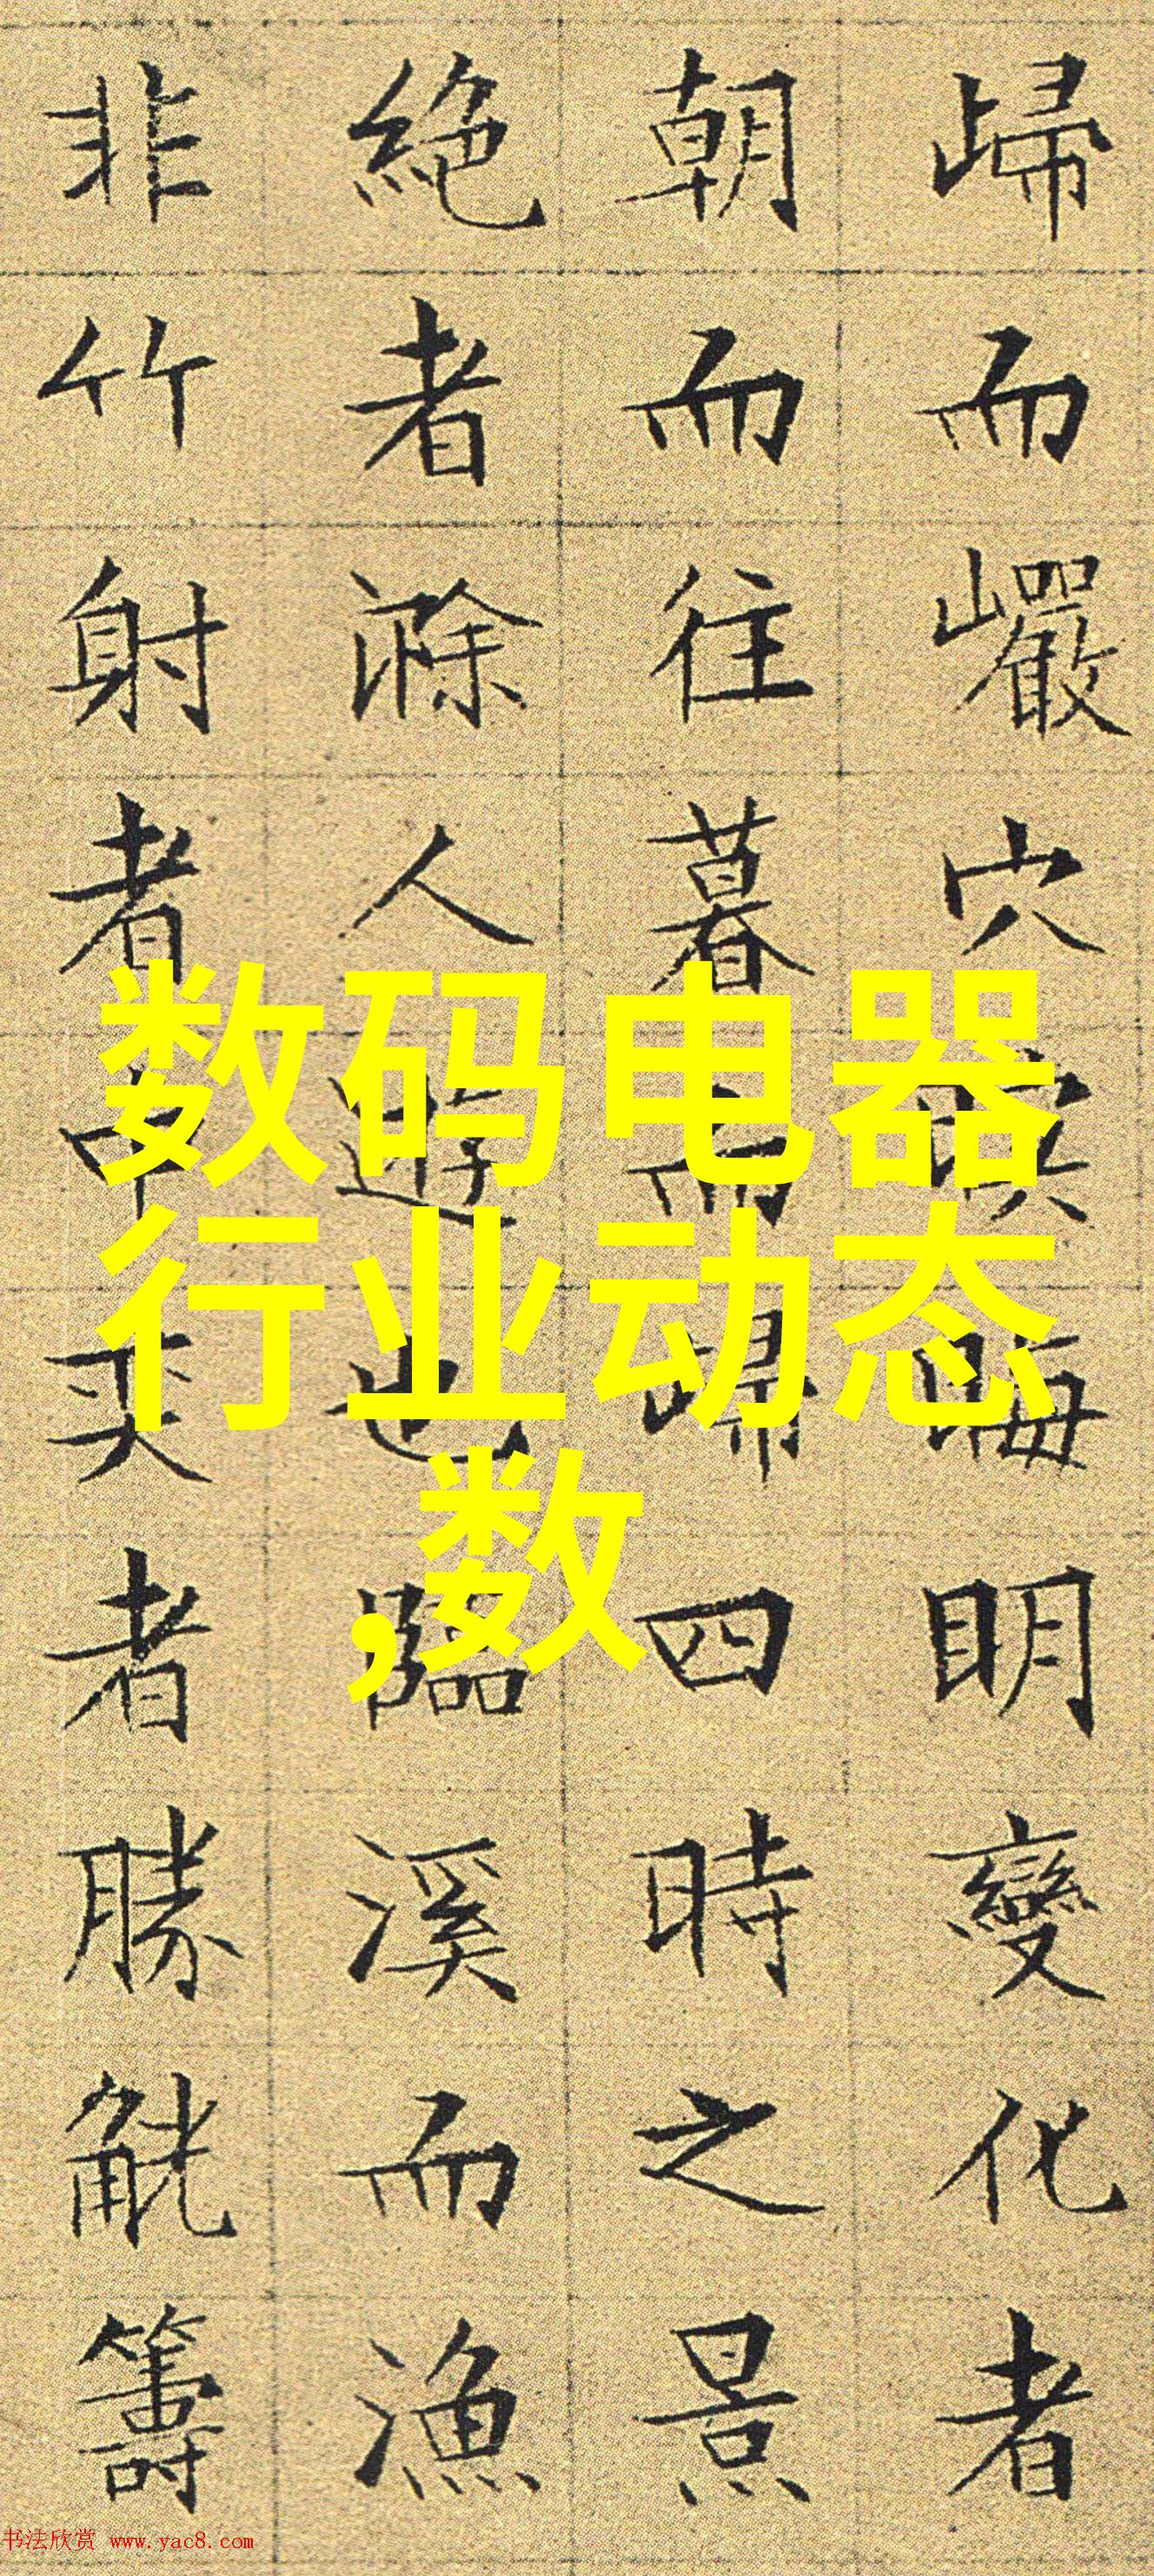 歸而巖穴暝晦明變化者
朝而往暮而歸四時之景
絕者滁人遊也臨溪而漁
非竹射者中奕者勝觥籌
数码电器
行业动态
,数
书法欣赏 www.yac8.com